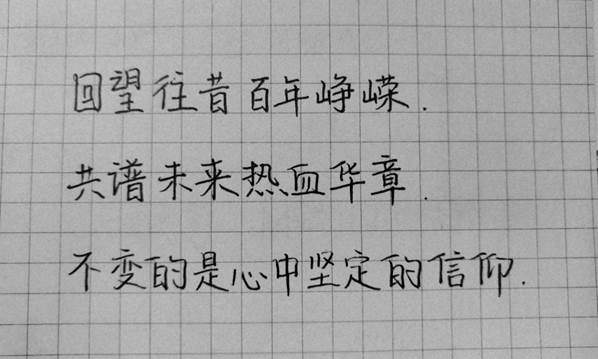 回望往昔百年峥嵘.
共谱未来热血华章.
不变的是心中坚定的信仰.